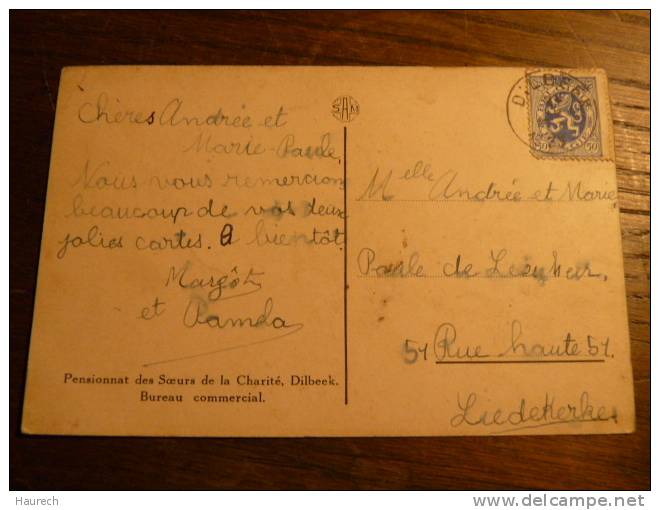 Chères Andrée et
Marie-Paule,
Nous vous remercions
beaucoup de vos deux
jolies cartes. A bientôt.
Margôt
et Pamela
Pensionnat des Sœurs de la Charité, Dilbeek.
Bureau commercial.
SAM
DILBEEK
50 50
Melle Andrée et Marie
Paule de
51 Rue haute 51.
Liedekerke.
Haurech
delcampe.net